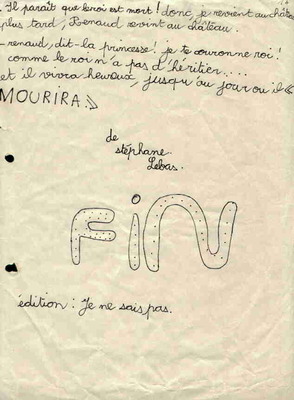 . Il paraît que le roi est mort ! donc, je revient au château
plus tard, Renaud revint au château.
- renaud, dit-la princesse ! je te couronne roi !
comme le roi n'a pas d'héritier....
et il vivra heureux, jusqu'au jour ou il «
MOURIRA.»
de
stéphane.
Lebas.
FiN
édition : Je ne sais pas.